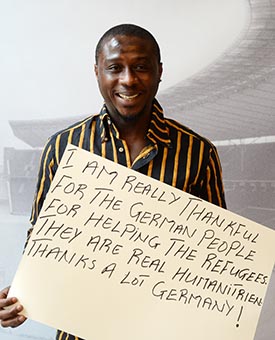 I AM REALLY THANKFUL
FOR THE GERMAN PEOPLE
FOR HELPING THE REFUGEES.
THEY ARE REAL HUMANITRIEN
THANKS A LOT GERMANY!